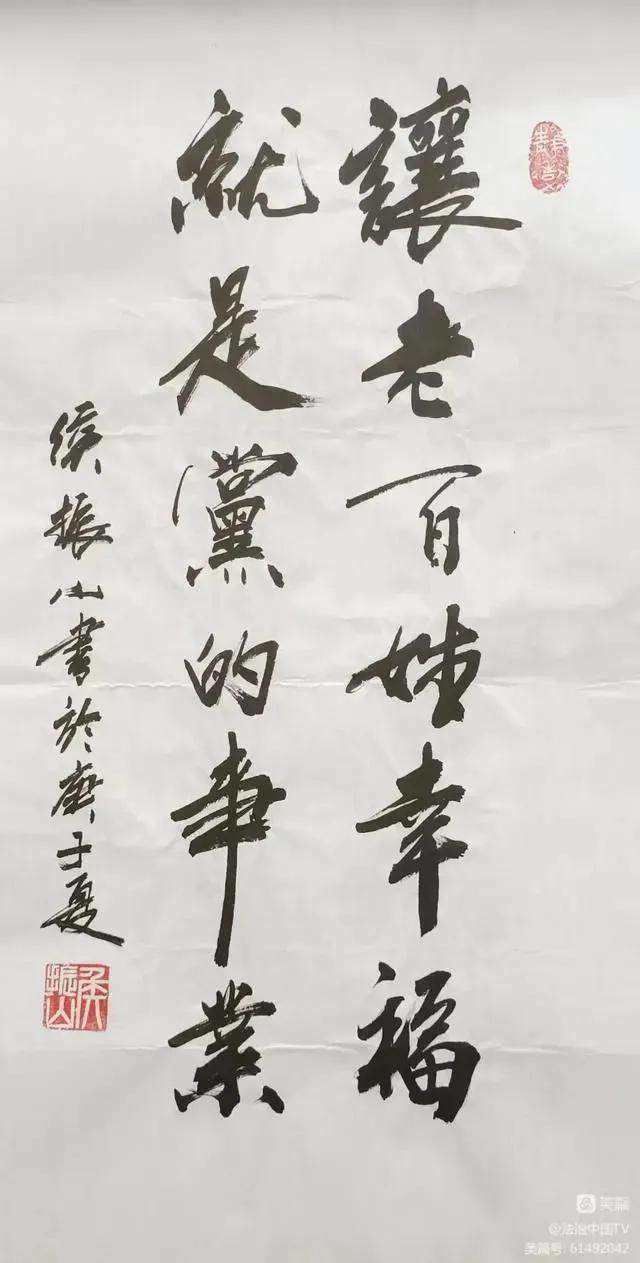 讓老百姓幸福
就是黨的事業
侯振山書於庚子夏
侯振山
美篇
@法治中国TV
美篇号: 61492042